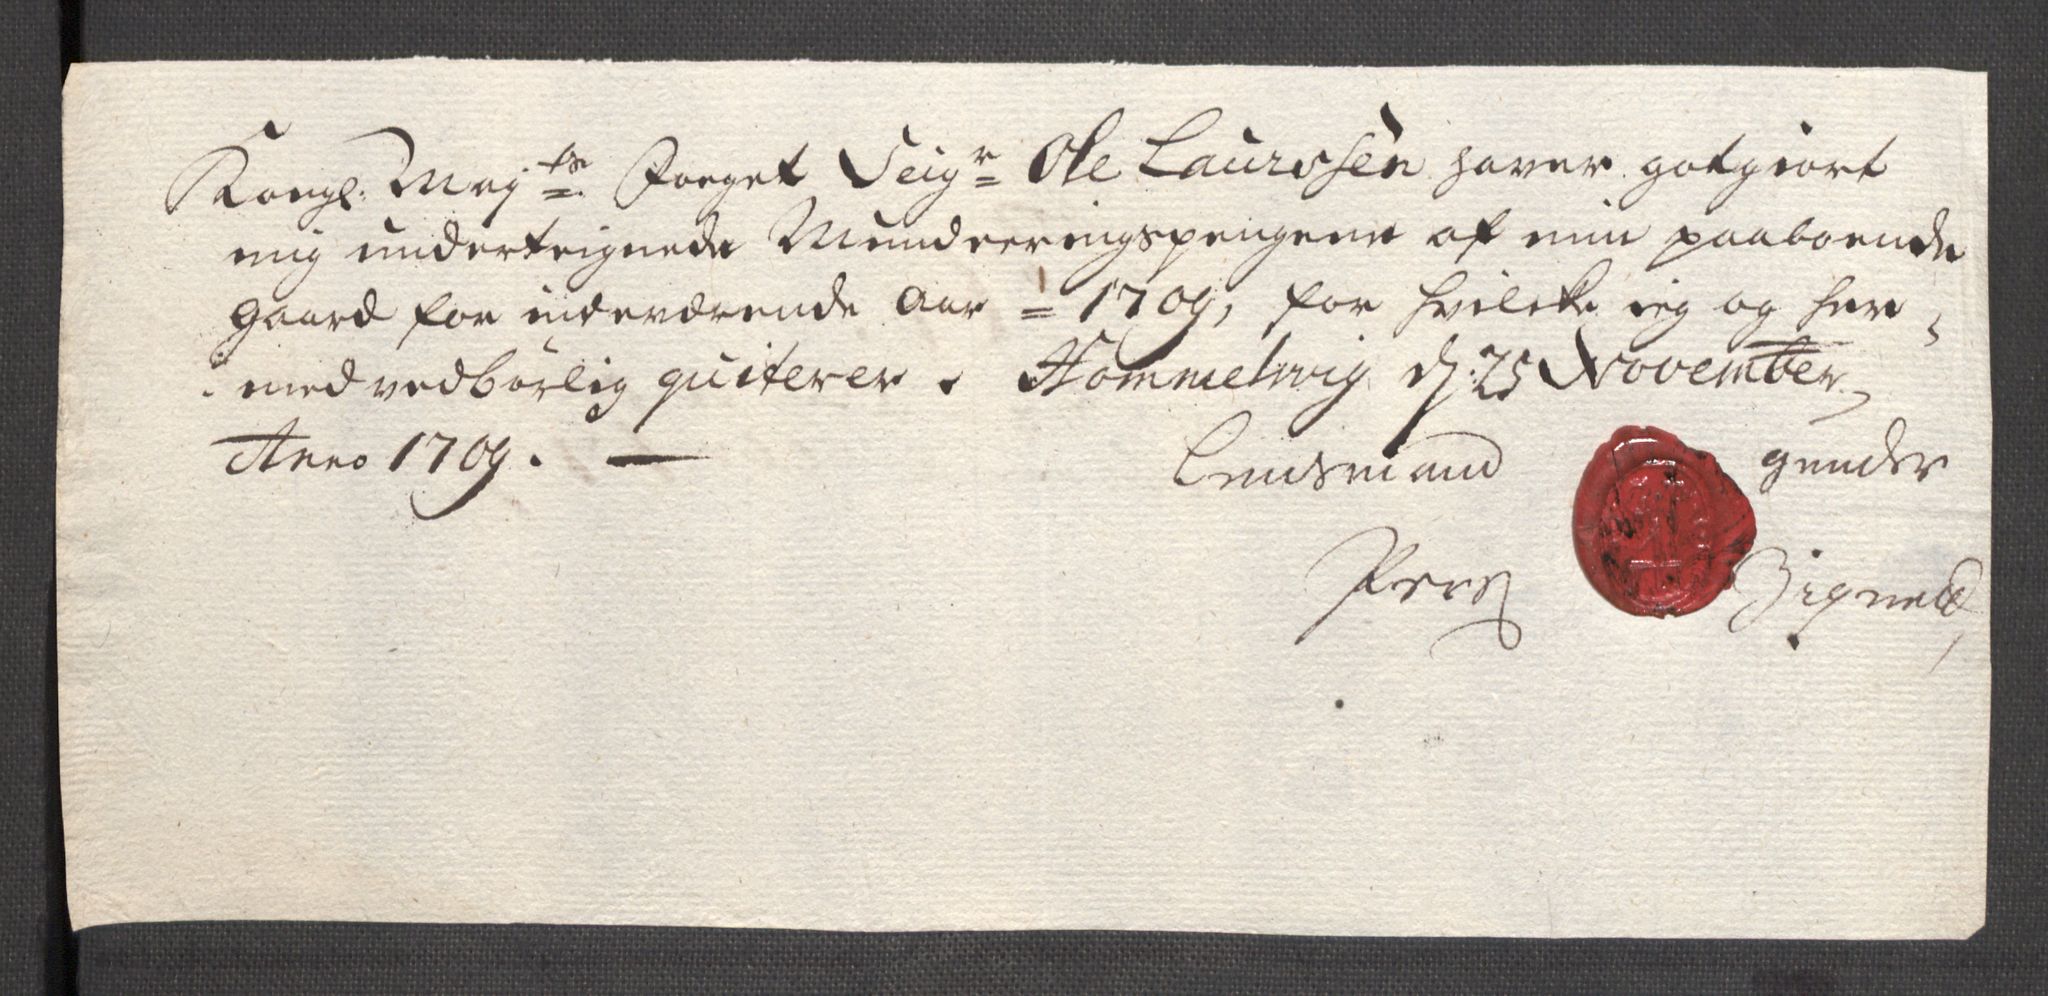 Kongl: Maj:ts Foeget Seigr Ole Laurssen haver gotgiort
mig underteignede Munderingspengene af min paaboende
gaard for indeværende Aar = 1709, for hvilcke ieg og her
med vedbørlig quiterer. Hommelwig d: 25 November
Anno 1709. —
Lensmand gunder